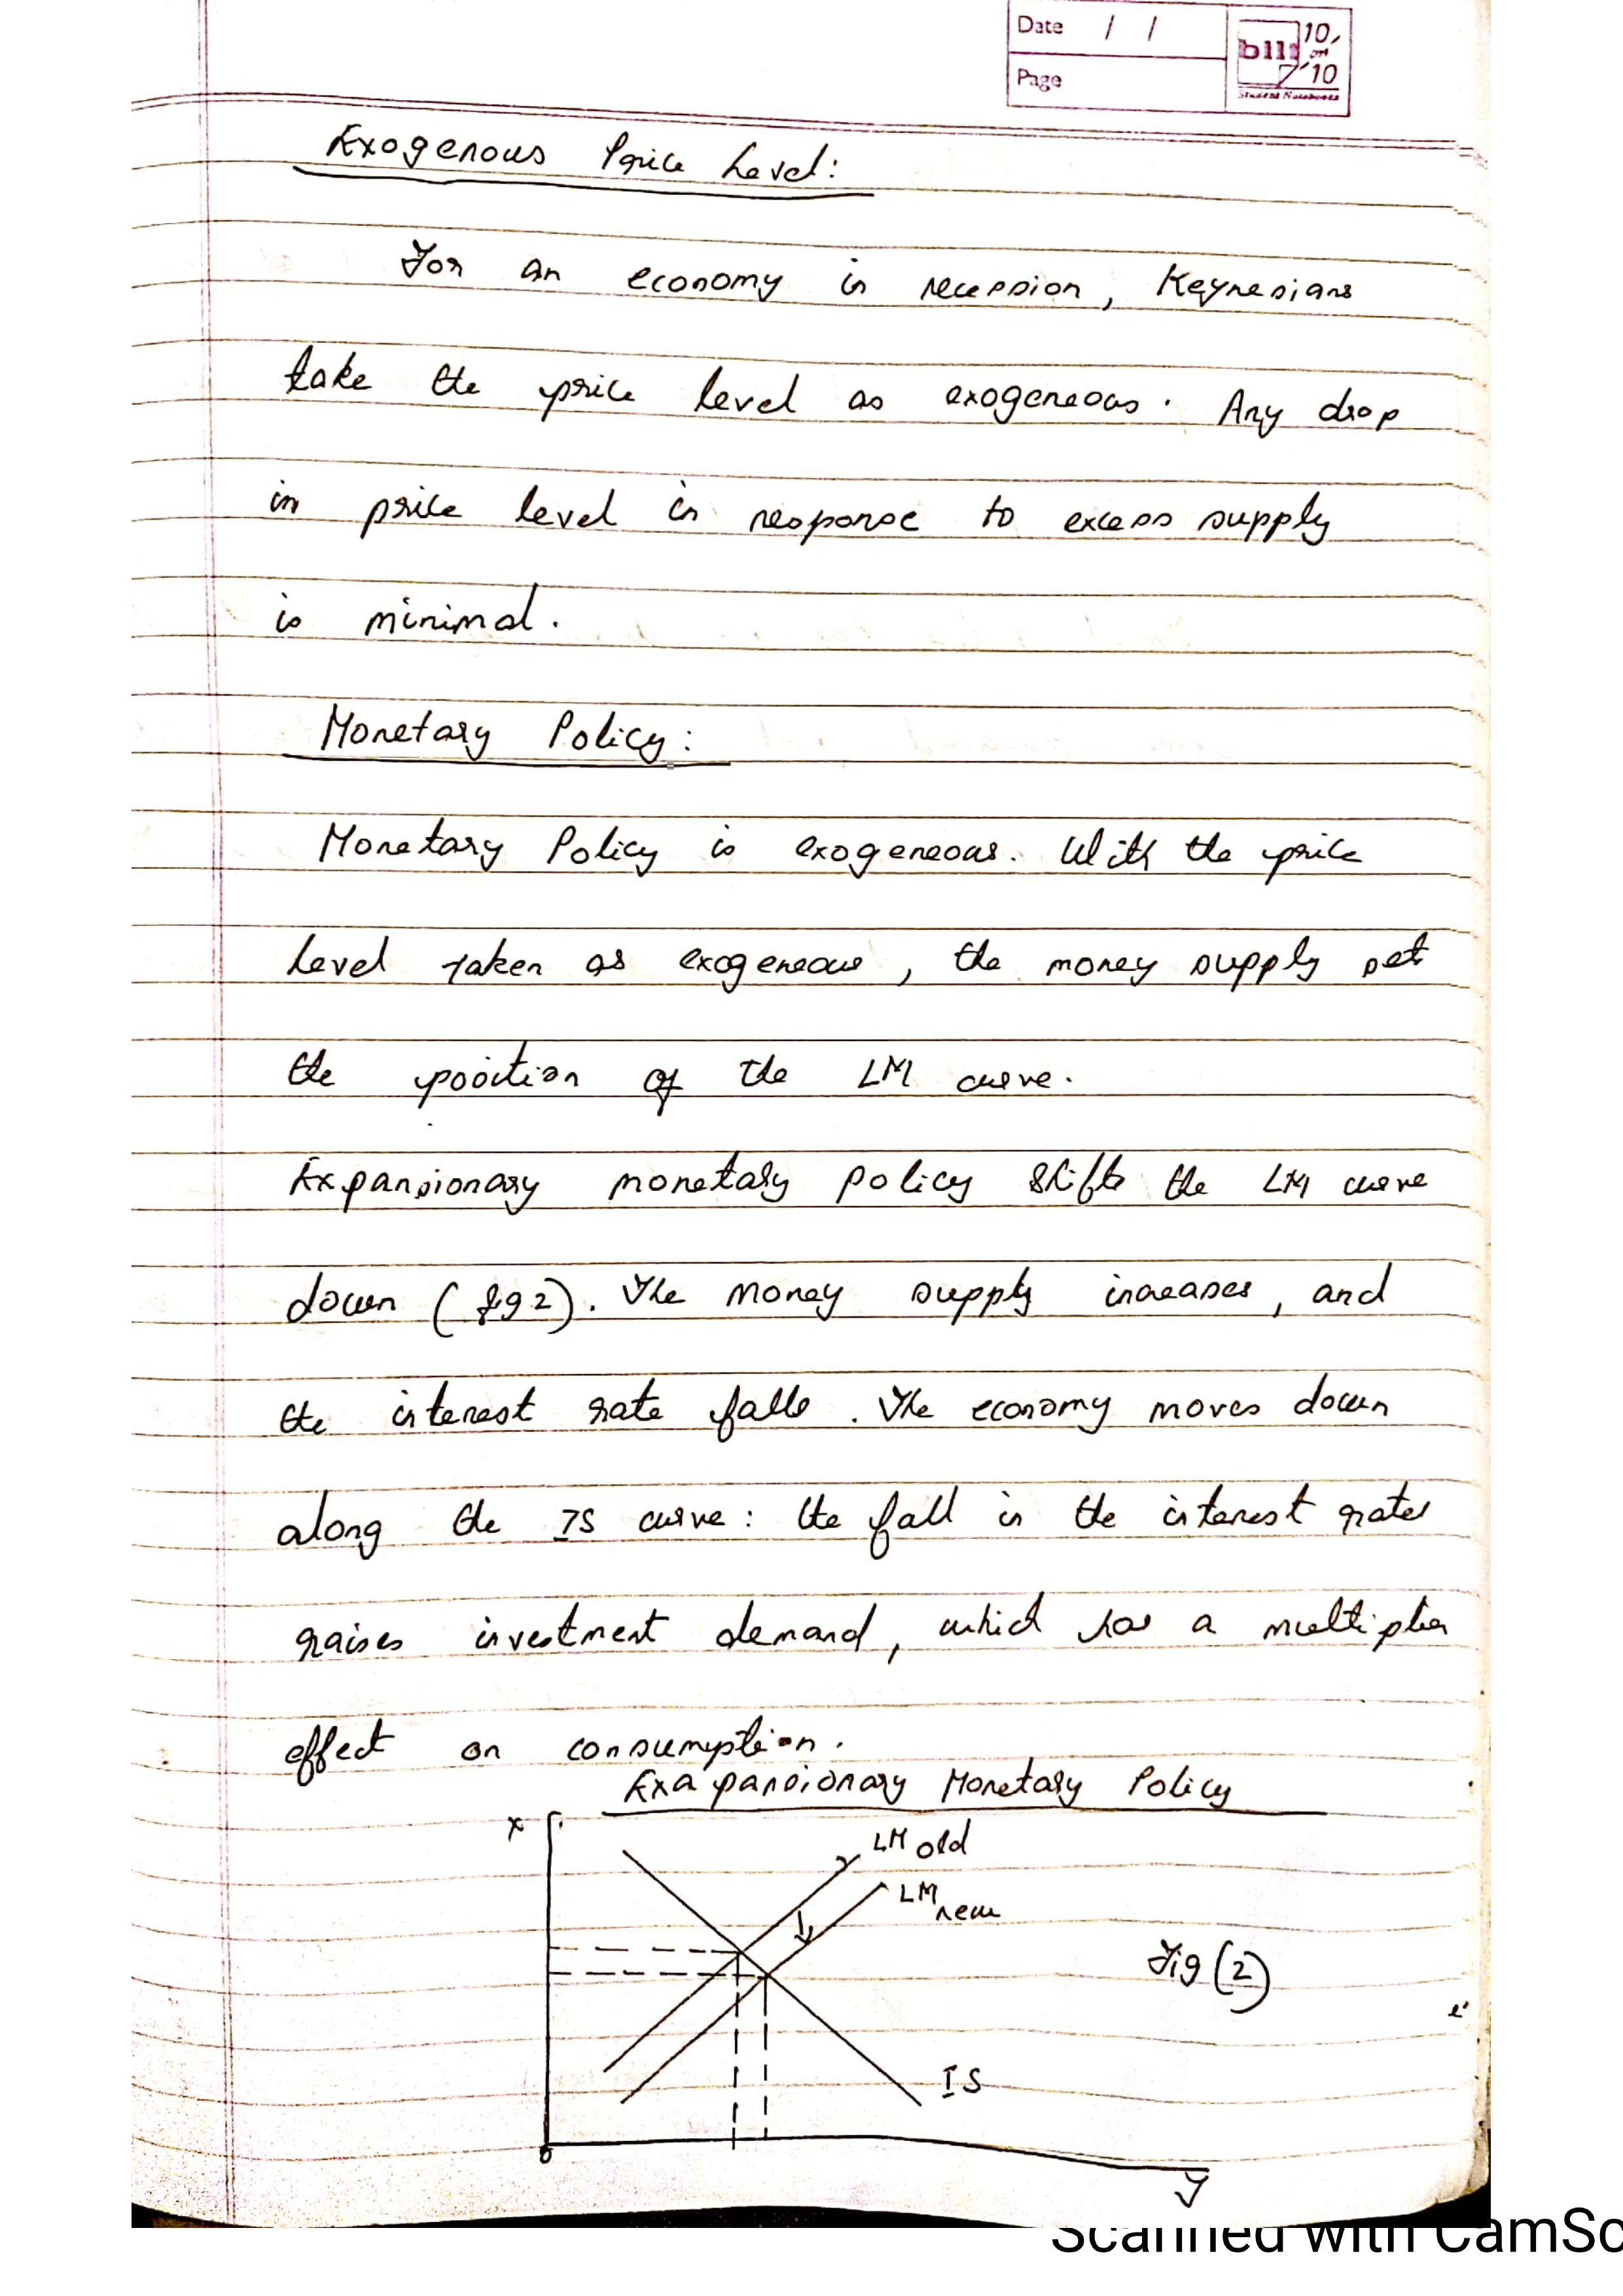 Date / /
Page
bill 10 on 10
Student Notebooks
Exogenous Price Level:
For an economy in recession, Keynesians
take the price level as exogeneous. Any drop
in price level in response to excess supply
is minimal.
Monetary Policy:
Monetary Policy is exogeneous. With the price
level taken as exogeneous, the money supply set
the position of the LM curve.
Expansionary monetary policy shifts the LM curve
down (fig 2). The money supply increases, and
the interest rate falls. The economy moves down
along the IS curve: the fall in the interest rates
raises investment demand, which has a multiplier
effect on consumption.
Exapansionary Monetary Policy
r
LM old
LM new
Fig (2)
IS
0
y
Scanned with CamSc